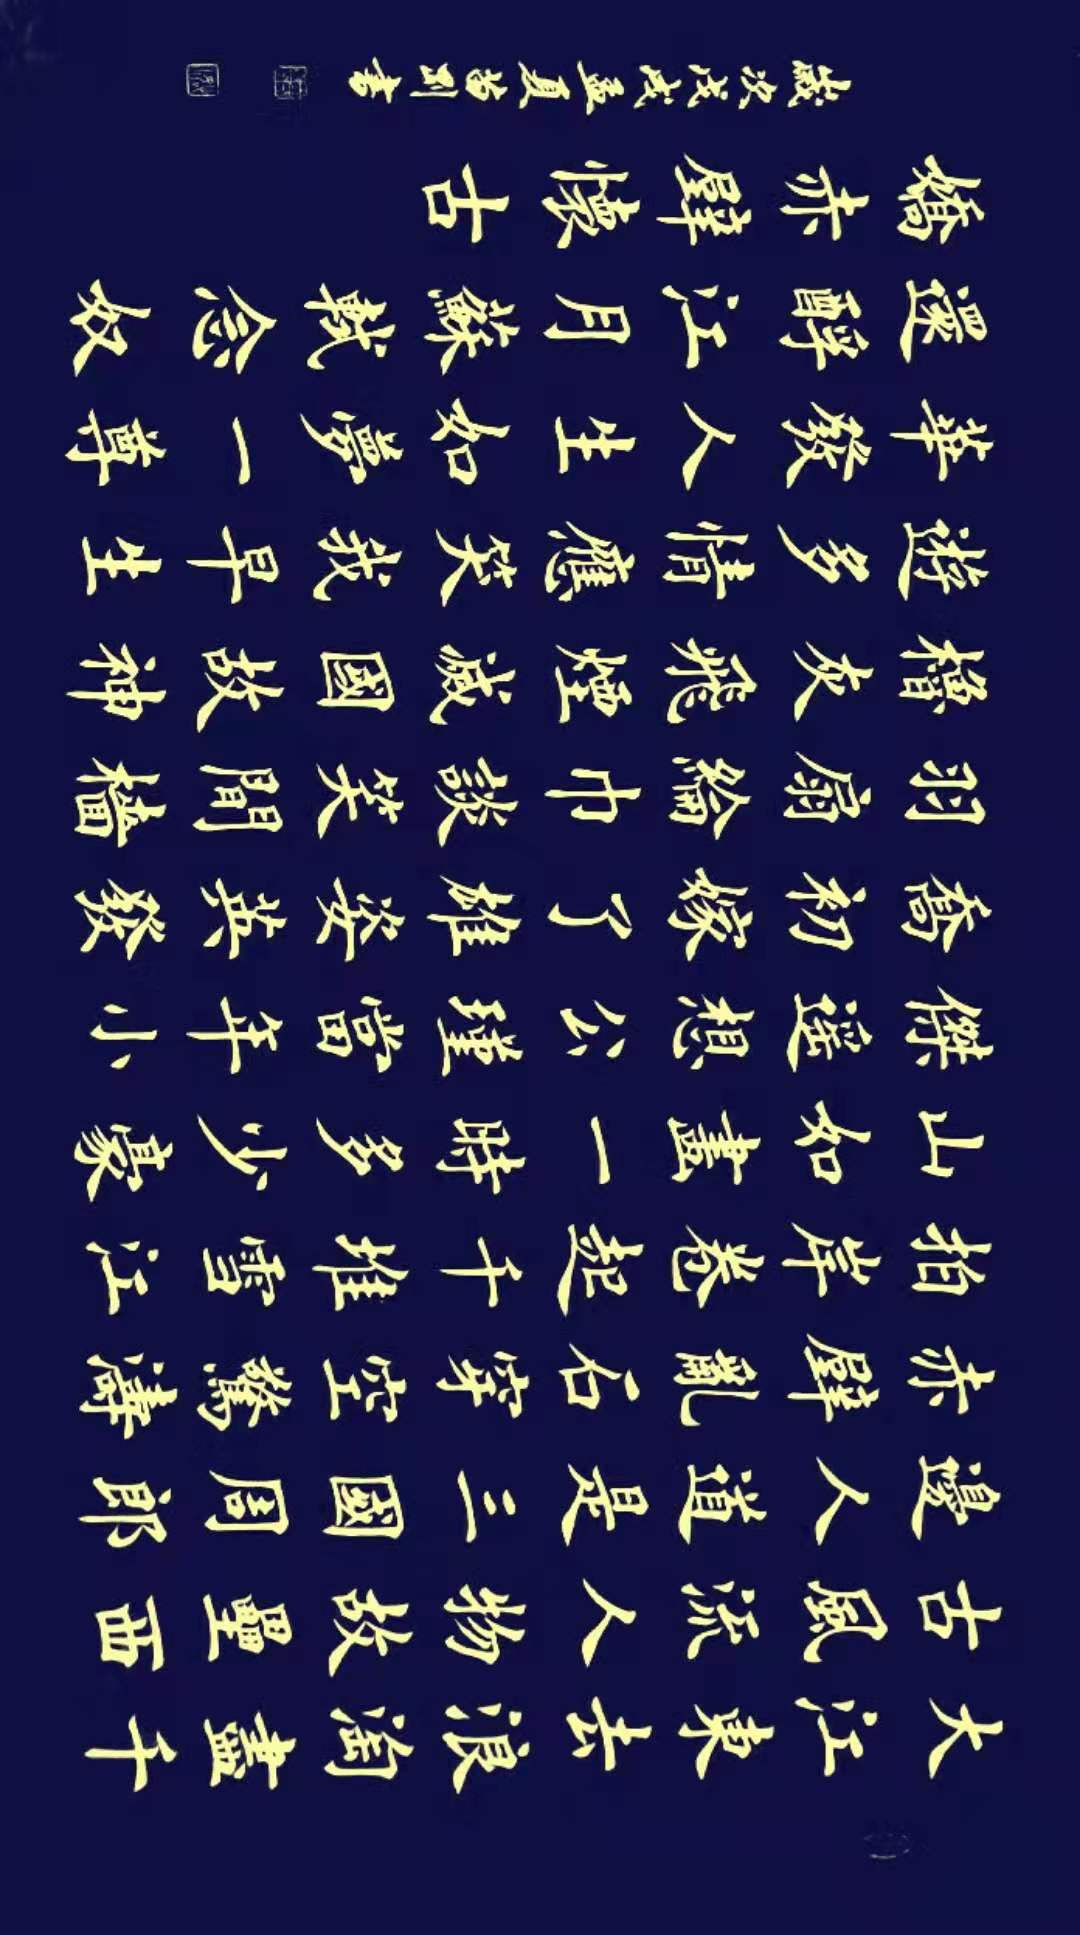 大江東去浪淘盡千
古風流人物故壘西
邊人道是三國周郎
赤壁亂石穿空驚濤
拍岸卷起千堆雪江
山如畫一時多少豪
傑遙想公瑾當年小
喬初嫁了雄姿英發
羽扇綸巾談笑間檣
櫓灰飛煙滅國故神
遊多情應笑我早生
華發人生如夢一尊
還酹江月蘇軾念奴
嬌赤壁懷古
歲次戊戌孟夏書